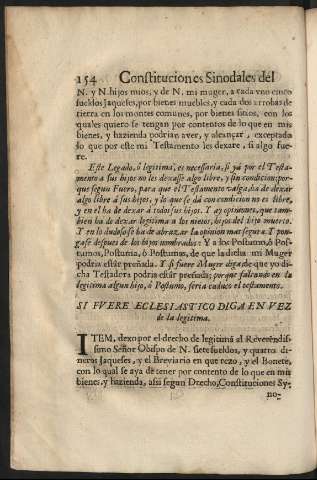 154 Constituciones Sinodales del
N. y N. hijos mios, y de N. mi muger, a cada vno cinco
sueldos Jaqueses, por bienes muebles, y cada dos arrobas de
tierra en los montes comunes, por bienes sitios, con los
quales quiero se tengan por contentos de lo que en mis
bienes, y hazienda podrian aver, y alcançar, exceptado
lo que por este mi Testamento les dexare, si algo fue-
re.
Este Legado, ò legitima, es necesaria, si yà por el Testa-
mento a sus hijos no les dexasse algo libre, y sin condicion: por-
que segun Fuero, para que el Testamento valga, ha de dexar
algo libre à sus hijos, y lo que se dà con condicion no es libre,
y en el ha de dexar à todos sus hijos. Y ay opiniones, que tam-
bien ha de dexar legitima a los nietos, hijos del hijo muerto.
Y en lo dudoso se ha de abrazar la opinion mas segura. Y pon-
gase despues de los hijos nombrados: Y a los Postumo, ò Pos-
tumos, Postuma, ò Postumas, de que la dicha mi Muger
podria estàr preñada. Y si fuere Muger diga, de que yo di-
cha Testadora podria estàr preñada; porque faltando en la
legitima algun hijo, ò Postumo, seria caduco el testamento.
SI FVERE ECLESIASTICO DIGA EN VEZ
de la legitima.
ITEM, dexo por el drecho de legitima al Reverendis-
simo Señor Obispo de N. siete sueldos, y quatro di-
neros Jaqueses, y el Breviario en que rezo, y el Bonete,
con lo qual se aya de tener por contento de lo que en mis
bienes, y hazienda, assi segun Drecho, Constituciones Sy-
no-